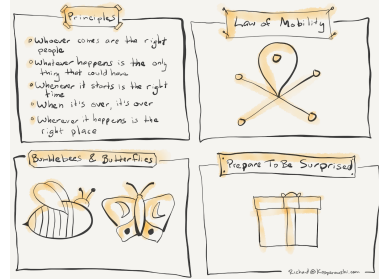 Principles
Whoever comes are the right
people
Whatever happens is the only
thing that could have
Whenever it starts is the right
time
When it's over, it's over
Wherever it happens is the
right place
Law of Mobility
Bumblebees & Butterflies
Prepare To Be Surprised